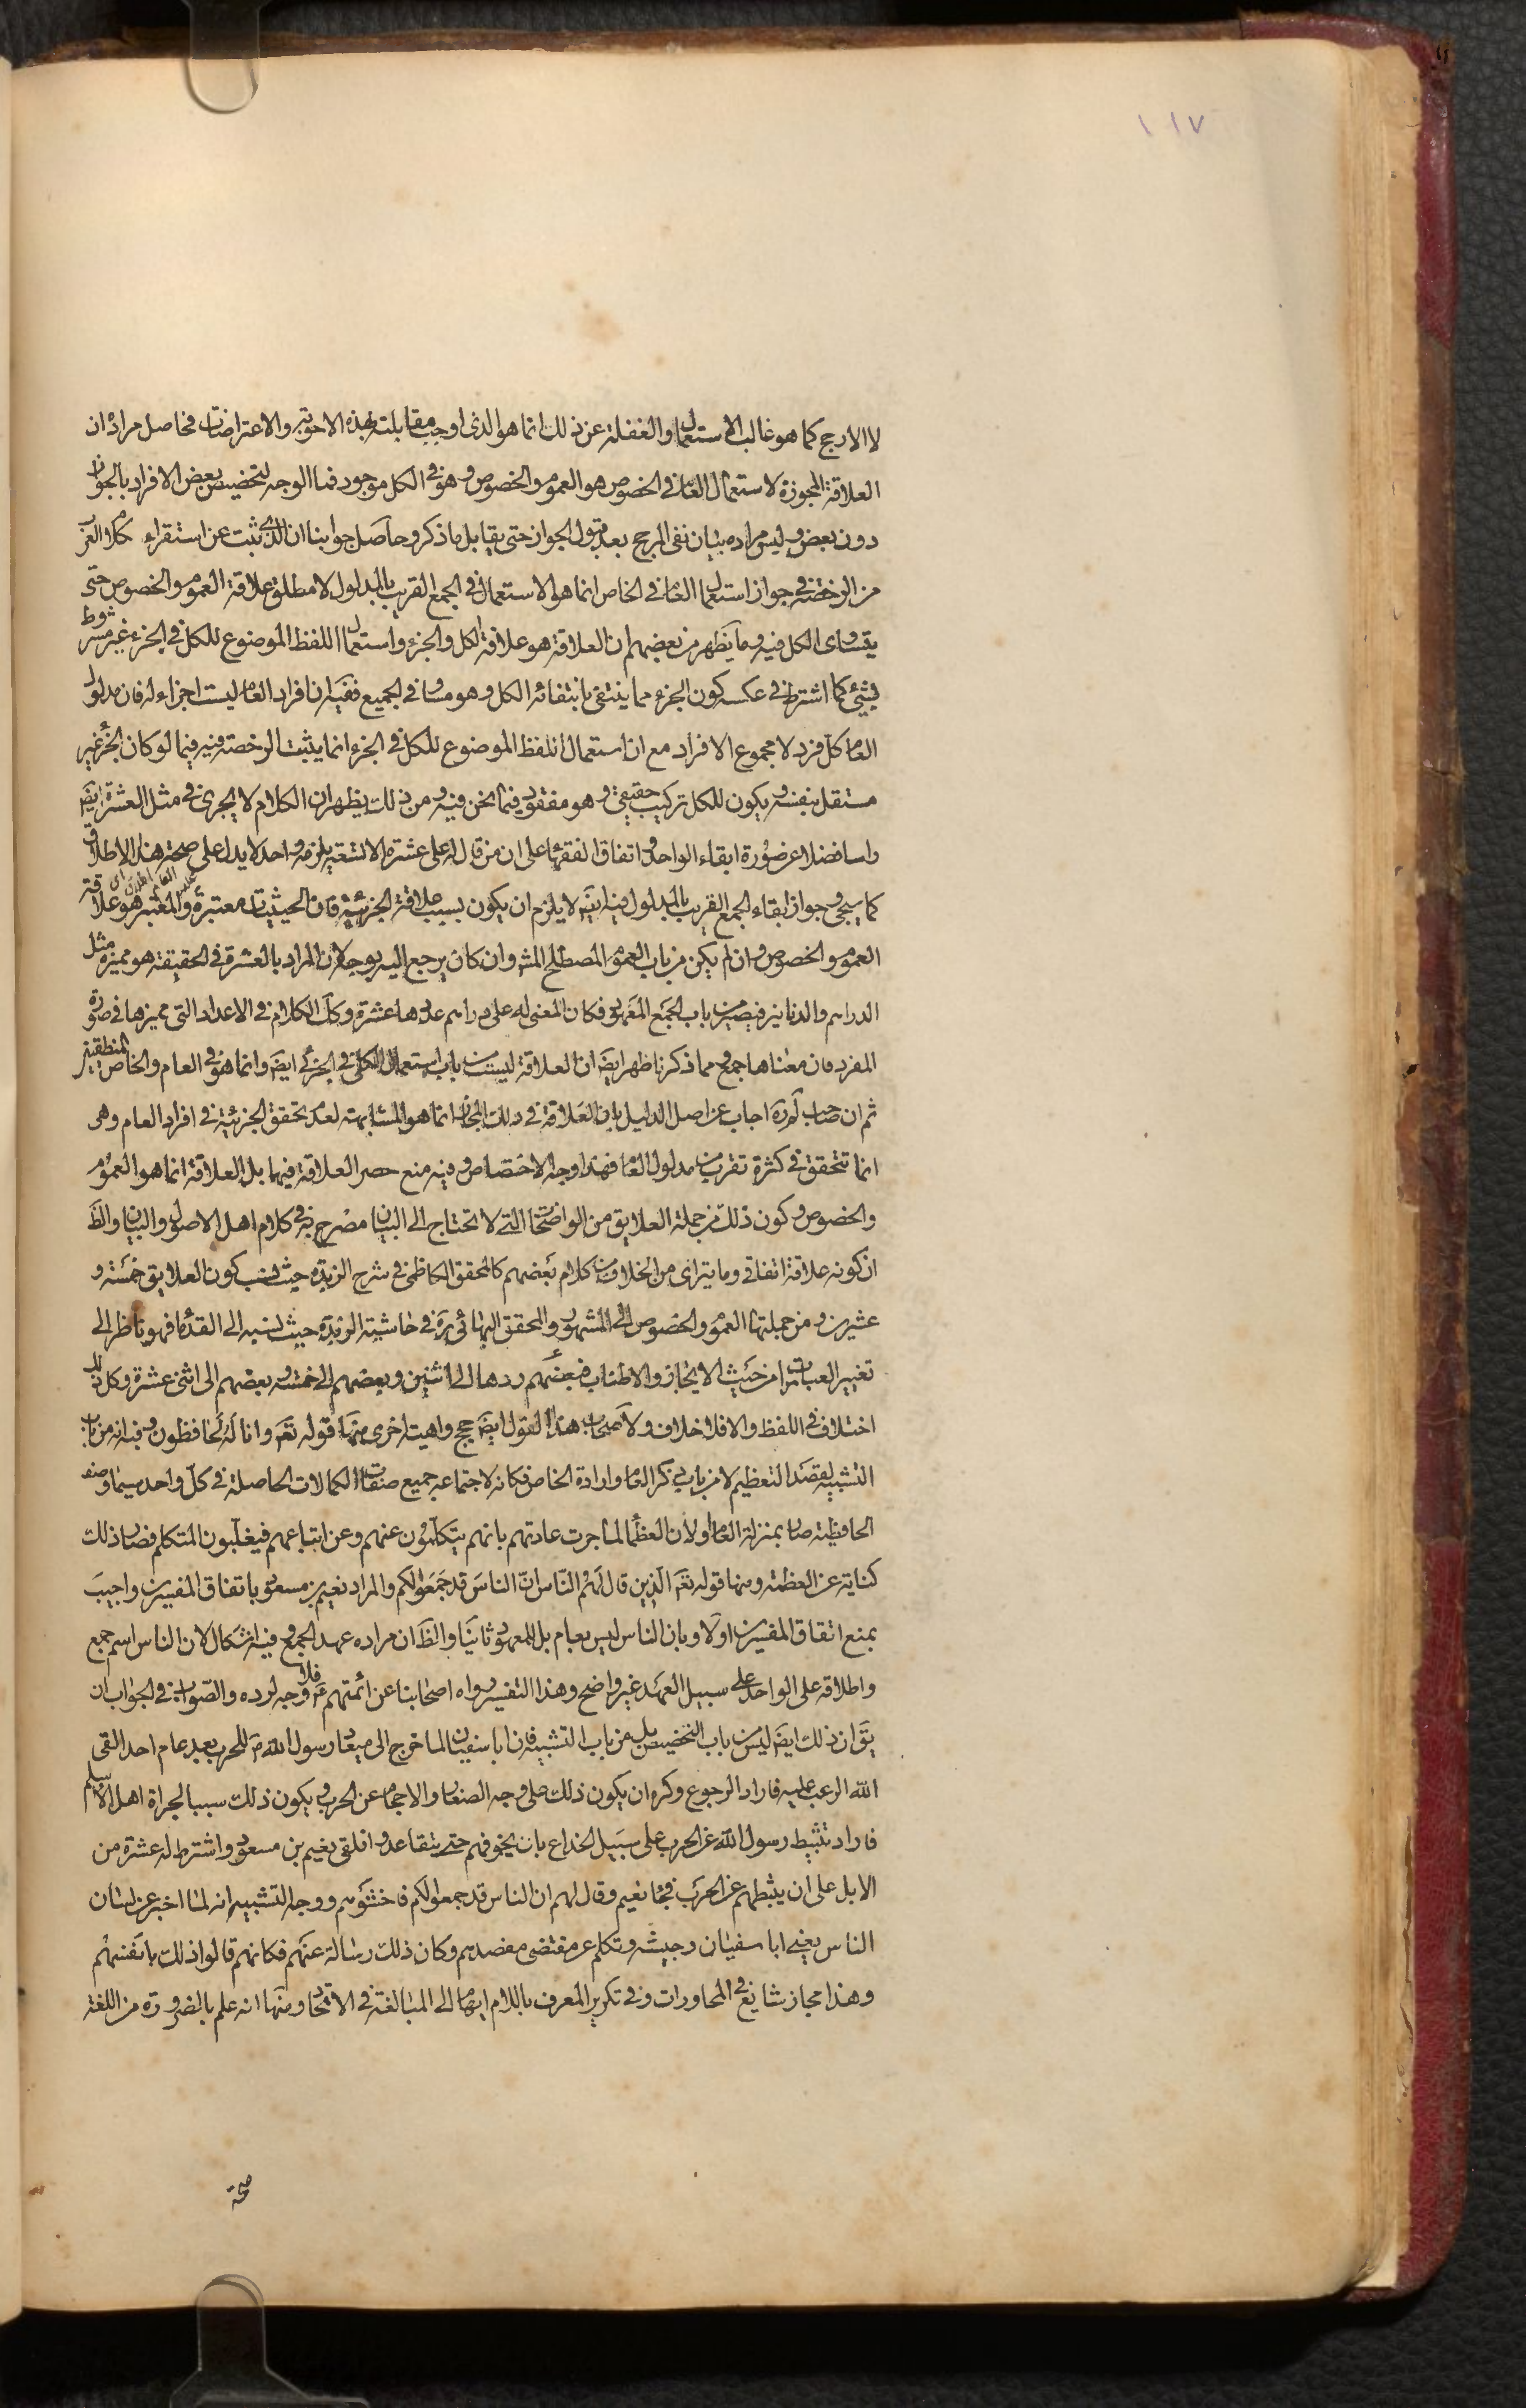 ١١٧
لا الارجح كما هو غالب الاستعمال والغفلة عن ذلك انما هو الذى اوجب مقابلته بهذه الاجوبة والاعتراضات فحاصل مراده ان
العلاقة المجوزة لاستعمال العام فى الخصوص هو العموم والخصوص وهو فى الكل موجود فما الوجه لتخصيص بعض الافراد بالجواز
دون بعض وليس مراده بيان نفى المرجح بعد قبول الجواز حتى يقابل بما ذكر وحاصل جوابنا ان الذى ثبت عن استقراء كلام العرب
من الرخصة فى جواز استعمال العام فى الخاص انما هو الاستعمال فى الجمع القريب بالمدلول لا مطلق علاقة العموم والخصوص حتى
يتساوى الكل فيه وما يظهر من بعضهم ان العلاقة هو علاقة الكل والجزء واستعمال اللفظ الموضوع للكل فى الجزء غير مشروط
بشئ كما اشترط فى عكسه كون الجزء مما ينتفى بانتفائه الكل وهو مساو فى الجميع ففيه ان افراد العام ليست اجزاء له فان مدلول
العام كل فرد لا مجموع الافراد مع ان استعمال اللفظ الموضوع للكل فى الجزء انما يثبت الرخصة فيه فيما لو كان الجزء غير
مستقل بنفسه ويكون للكل تركيب حقيقى وهو مفقود فيما نحن فيه ومن ذلك يظهر ان الكلام لا يجرى فى مثل العشرة ايضا
واسا فضلا عن صورة ابقاء الواحد واتفاق الفقهاء على ان من قال له على عشرة الا تسعة يلزمه واحد لا يدل على صحة هذا الاطلاق
كما سيجئ وجواز ابقاء الجمع القريب بالمدلول فيه ايضا لا يلزم ان يكون بسبب علاقة الجزئية فان الحيثيات معتبرة والمعتبر هو علاقة
العموم والخصوص وان لم يكن من باب العموم المصطلح المشهور وان كان يرجع اليه بوجه لان المراد بالعشرة فى الحقيقة هو مميزه مثل
الدراهم والدنانير فيصير من باب الجمع المعهود فكان المعنى له على دراهم عددها عشرة وكذا الكلام فى الاعداد التى مميزها فى صورة
المفرد فان معناها جمع ومما ذكرنا ظهر ايضا ان العلاقة ليست من باب استعمال الكلى فى الجزئى ايضا وانما هو فى العام والخاص المنطقيين
ثم ان صاحب لم ره اجاب عن اصل الدليل بان العلاقة فى ذلك المجاز انما هو المشابهة لعدم تحقق الجزئية فى افراد العام وهى
انما تتحقق فى كثرة تقرب من مدلول العام فهذا وجه الاختصاص وفيه منع حصر العلاقة فيهما بل العلاقة انما هو العموم
والخصوص وكون ذلك من جملة العلايق من الواضحات التى لا تحتاج الى البيان مصرح به فى كلام اهل الاصول والبيان والظ
ان كونه علاقة اتفاقى وما يتراى من الخلاف من كلام بعضهم كالمحقق الكاظمى فى شرح الزبدة حيث نسب كون العلايق خمسة و
عشرين ومن جملتها العموم والخصوص الى المشهور والمحقق البهائى ره فى حاشية الزبدة حيث نسبه الى القدماء فهو ناظر الى
تغيير العبارات من حيث الايجاز والاطناب فبعضهم ردها الى اثنين وبعضهم الى خمسة وبعضهم الى اثنى عشرة وكل ذلك
اختلاف فى اللفظ والا فلا خلاف ولاصحاب هذا القول ايضا حجج واهية اخرى منها قوله تع وانا له لحافظون وفيه انه من باب
التشبيه لقصد التعظيم لا من باب ذكر العام وارادة الخاص فكانه لاجتماعه جميع صفات الكمالات الحاصلة فى كل واحد سيما وصف
الحافظية صار بمنزلة العام او لان العظماء لما جرت عادتهم بانهم يتكلمون عنهم وعن اتباعهم فيغلبون المتكلم فصار ذلك
كناية عن العظمة ومنها قوله تع الذين قال لهم الناس ان الناس قد جمعوا لكم والمراد نعيم بن مسعود باتفاق المفسرين واجيب
بمنع اتفاق المفسرين اولا وبان الناس ليس بعام بل للمعهود ثانيا والظ ان مراده عهد الجمع وفيه اشكال لان الناس اسم جمع
واطلاقه على الواحد على سبيل العهد غير واضح وهذا التفسير رواه اصحابنا عن ائمتهم ع فلا وجه لرده والصواب فى الجواب ان
يق ان ذلك ايضا ليس من باب التخصيص بل من باب التشبيه فان ابا سفيان لما خرج الى ميعاد رسول الله ص للحرب بعد عام احد القى
الله الرعب عليه فاراد الرجوع وكره ان يكون ذلك على وجه الصغار والاحجام عن الحرب ويكون ذلك سببا لجراة اهل الاسلام
فاراد تثبيط رسول الله عن الحرب على سبيل الخداع بان يخوفهم حتى يتقاعدوا فلقى نعيم بن مسعود واشترط له عشرة من
الابل على ان يثبطهم عن الحرب فجاء نعيم وقال لهم ان الناس قد جمعوا لكم فاخشوهم ووجه التشبيه انه لما اخبر عن لسان
الناس يعنى ابا سفيان وجيشه وتكلم عن مقتضى مقصدهم وكان ذلك رسالة عنهم فكانهم قالوا ذلك بانفسهم
وهذا مجاز شايع فى المحاورات وفى تكرير المعرف باللام ايماء الى المبالغة فى الاتحاد ومنها انه علم بالضرورة من اللغة
صحة